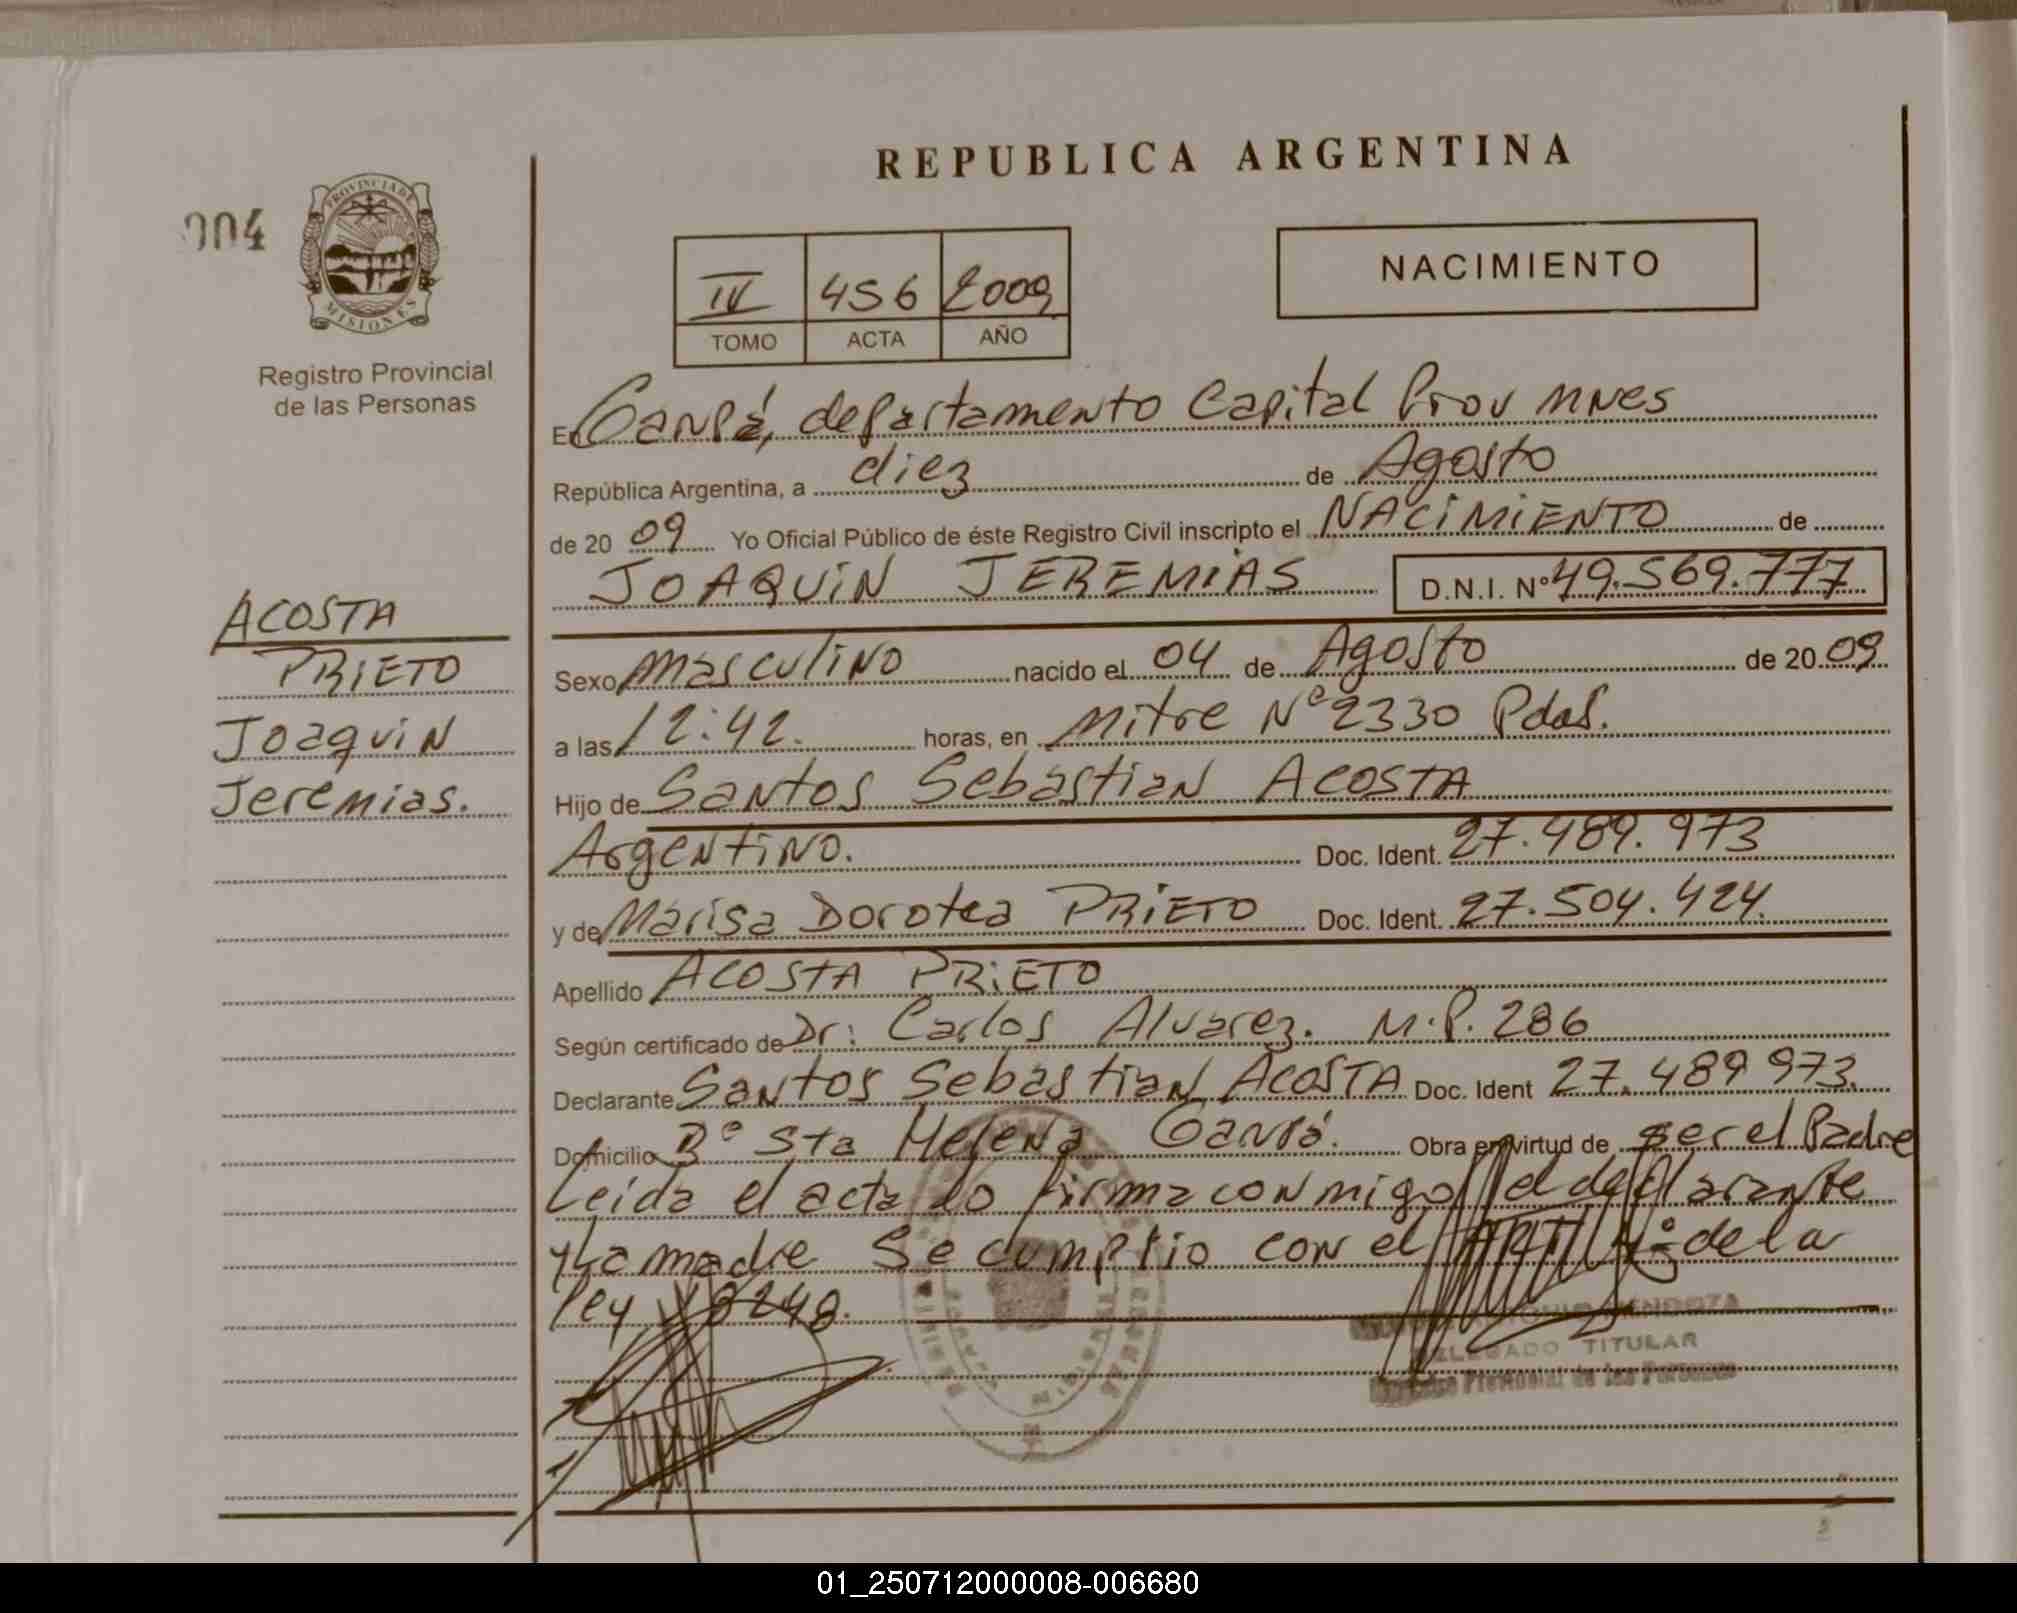 REPUBLICA ARGENTINA
004
PROVINCIA DE
MISIONES
Registro Provincial
de las Personas
NACIMIENTO
IV 456 2009
TOMO ACTA AÑO
En Garupá, departamento Capital Prov Mnes
República Argentina, a diez de Agosto
de 20 09 Yo Oficial Público de éste Registro Civil inscripto el NACIMIENTO de
JOAQUIN JEREMIAS D.N.I. Nº 49.569.777
ACOSTA
PRIETO
Joaquin
Jeremias.
Sexo masculino nacido el 04 de Agosto de 20 09
a las 12:42. horas, en Mitre Nº 2330 Pdas.
Hijo de Santos Sebastian ACOSTA
Argentino. Doc. Ident. 27.489.973
y de Marisa Dorotea PRIETO Doc. Ident. 27.504.424
Apellido ACOSTA PRIETO
Según certificado de Dr: Carlos Alvarez. M.P. 286
Declarante Santos Sebastian ACOSTA Doc. Ident 27.489 973.
Domicilio Bº Sta Helena Garupá. Obra en virtud de ser el Padre
Leida el acta lo firma conmigo el declarante
y La madre Se cumplio con el de la
ley 18248.
MENDOZA
DELEGADO TITULAR
Registro Provincial de las Personas
01_250712000008-006680